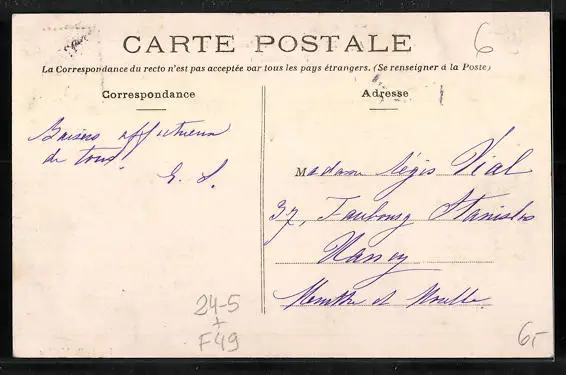 CARTE POSTALE
La Correspondance du recto n'est pas acceptée par tous les pays étrangers. (Se renseigner à la Poste)
Correspondance
Baisers affectueux
de tous!
E. S.
24-5
+
F49
Adresse
Madame Régis Vial
37, Faubourg Stanislas
Nancy
Meurthe et Moselle.
6
6,-